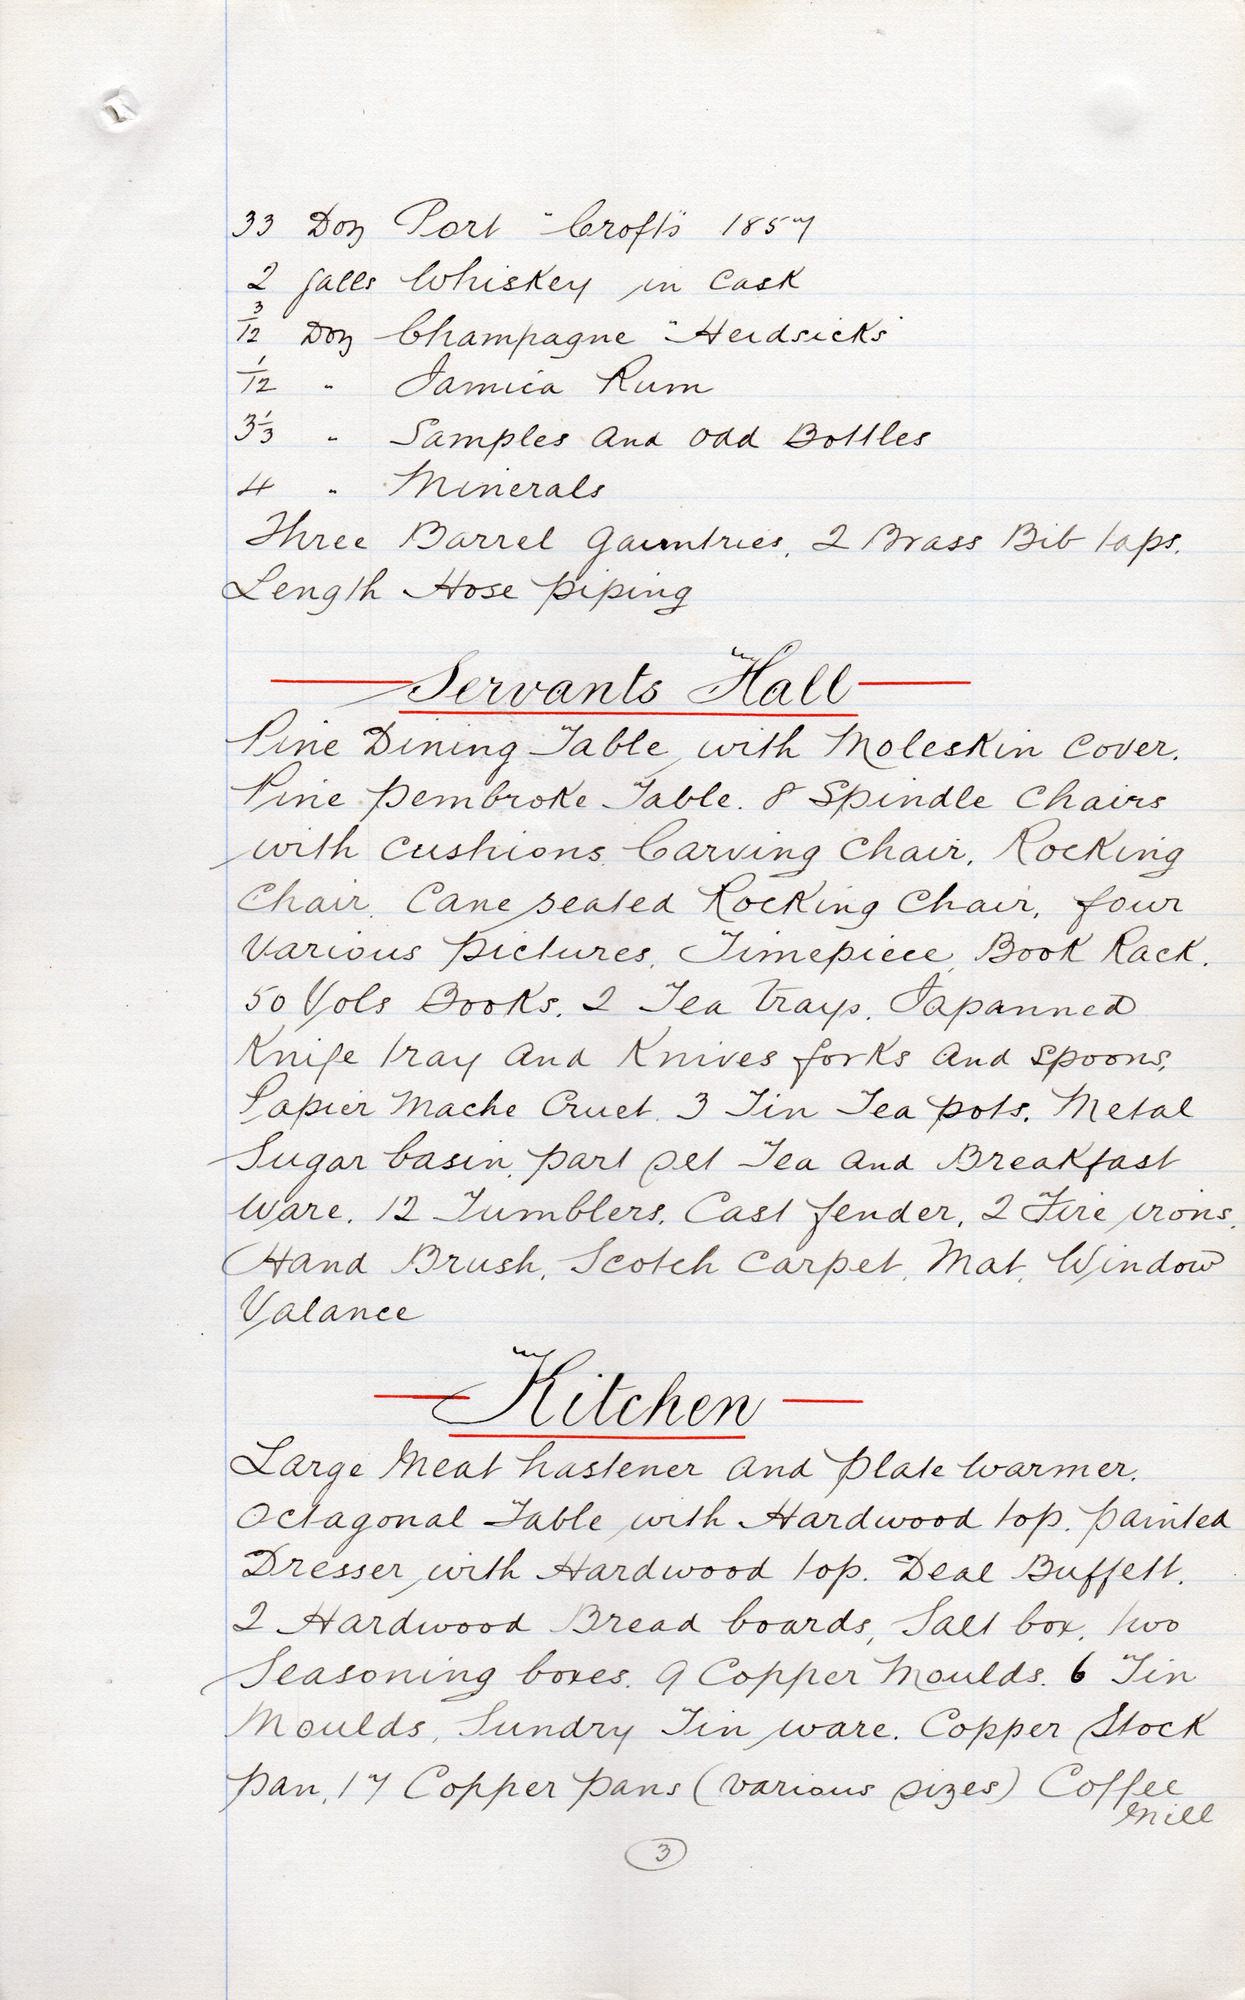 33 Doz Port "Croft's" 1857
2 galls Whiskey in Cask
3/12 Doz Champagne "Heidsicks"
1/12 " Jamica Rum
3 1/3 " Samples and odd Bottles
4 " Minerals
Three Barrel Gauntries, 2 Brass Bib taps.
Length Hose piping
Servants Hall
Pine Dining Table with Moleskin Cover.
Pine Pembroke Table. 8 Spindle Chairs
with cushions, Carving Chair, Rocking
Chair, Cane seated Rocking Chair, four
various pictures, Timepiece, Book Rack.
50 Vols Books, 2 Tea trays, Japanned
Knife tray and Knives forks and spoons,
Papier Mache Cruet. 3 Tin Tea pots. Metal
Sugar basin, part set Tea and Breakfast
Ware. 12 Tumblers, Cast fender, 2 Fire irons,
Hand Brush, Scotch Carpet, Mat, Window
Valance
Kitchen
Large Meat hastener and plate warmer.
Octagonal Table with Hardwood top. painted
Dresser with Hardwood top. Deal Buffett.
2 Hardwood Bread boards, Salt box, two
Seasoning boxes. 9 Copper Moulds. 6 Tin
Moulds, Sundry Tin ware. Copper Stock
pan, 17 Copper pans (various sizes) Coffee
Mill
3